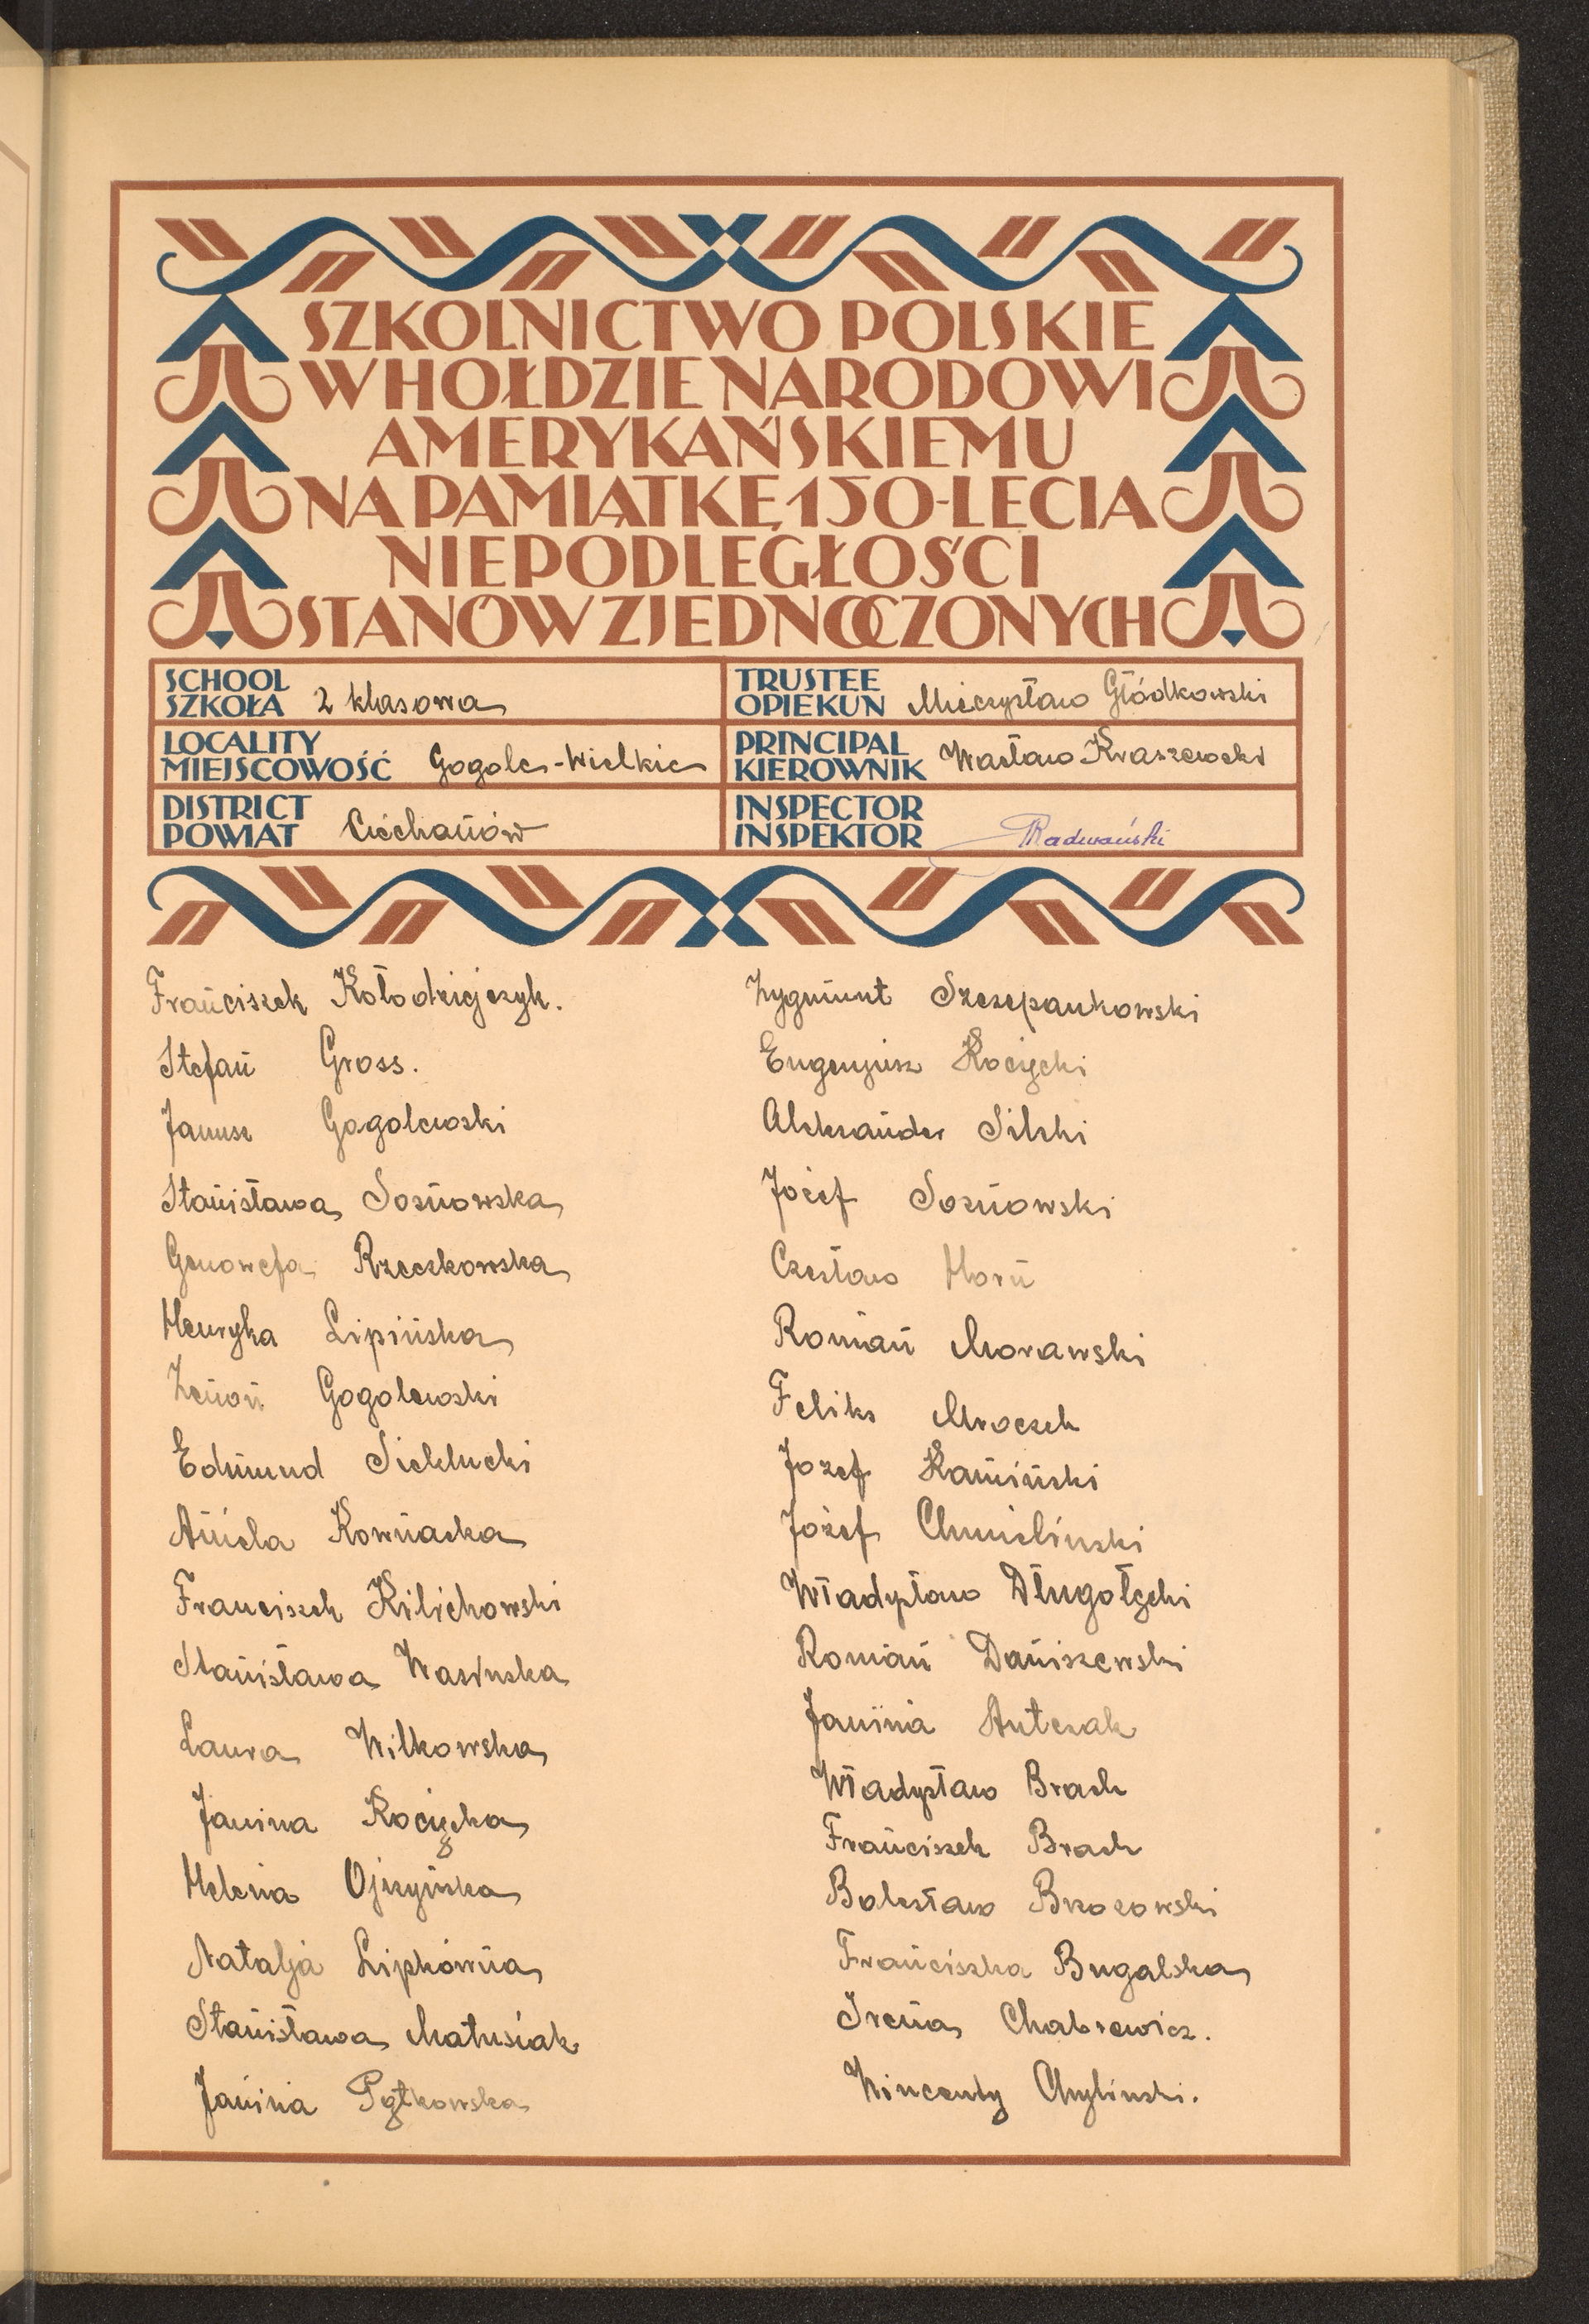 SZKOLNICTWO POLSKIE
W HOŁDZIE NARODOWI
AMERYKAŃSKIEMU
NA PAMIĄTKĘ 150-LECIA
NIEPODLEGŁOŚCI
STANÓW ZJEDNOCZONYCH
SCHOOL
SZKOŁA 2 klasowa
TRUSTEE
OPIEKUN Mieczysław Głódkowski
LOCALITY
MIEJSCOWOŚĆ Gogole-Wielkie
PRINCIPAL
KIEROWNIK Wacław Kraszewski
DISTRICT
POWIAT Ciechanów
INSPECTOR
INSPEKTOR Radwański
Franciszek Kołodziejczyk.
Stefan Gross.
Janusz Gogolewski
Stanisława Sosnowska
Genowefa Rzeczkowska
Henryka Lipińska
Zenon Gogolewski
Edmund Siekłucki
Aniela Kownacka
Franciszek Kilichowski
Stanisława Wasińska
Laura Wilkowska
Janina Kocięcka
Helena Ojrzyńska
Natalja Lipkówna
Stanisława Matusiak
Janina Pętkowska
Zygmunt Szczepankowski
Eugenjusz Kocięcki
Aleksander Silski
Józef Sosnowski
Czesław Horn
Roman Morawski
Feliks Mroczek
Jozef Kamiński
Józef Chmieliński
Władysław Długołęcki
Roman Daniszewski
Janina Antczak
Władysław Brach
Franciszek Brach
Bolesław Brzozowski
Franciszka Bugalska
Irena Chabrewicz.
Wincenty Chyliński.